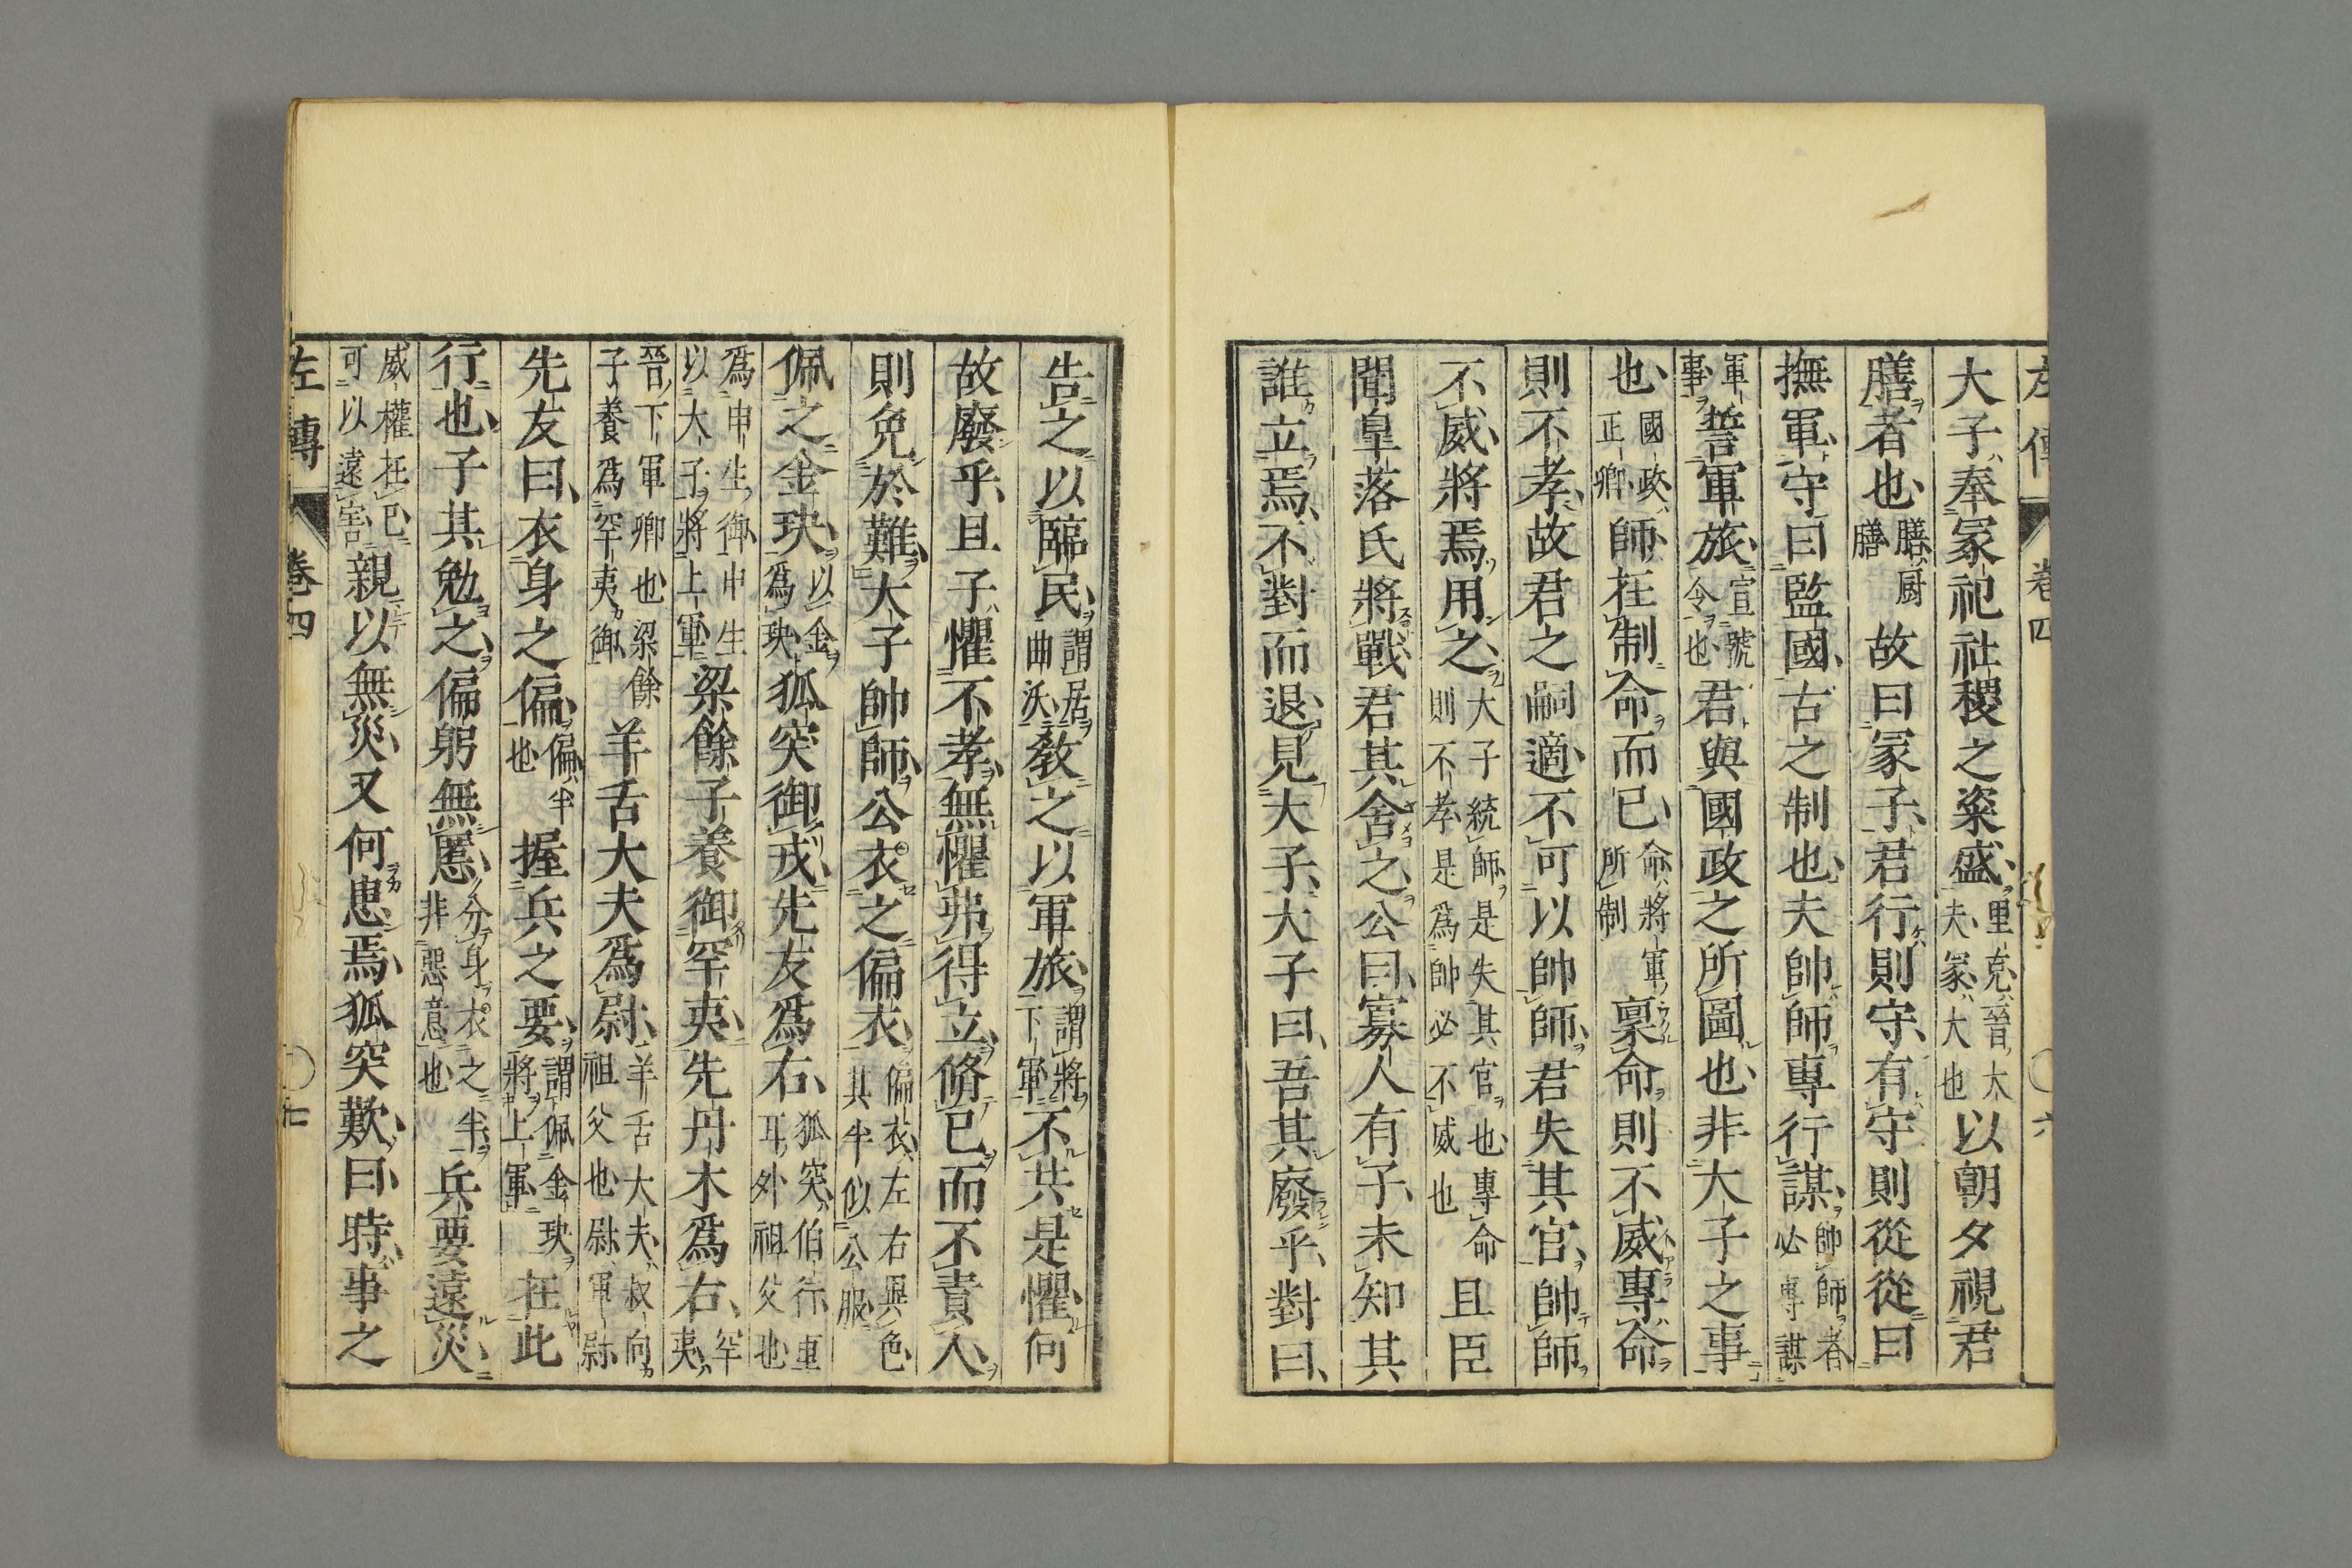 左傳 卷四 六
大子奉冢祀社稷之粢盛里克晉大夫冢大也以朝夕視君
膳者也膳厨膳故曰冢子君行則守有守則從從曰
撫軍守曰監國古之制也夫帥師專行謀帥師者必專謀
軍事誓軍旅宣號令也君與國政之所圖也非大子之事
也國政正卿師在制命而已命將軍所制稟命則不威專命
則不孝故君之嗣適不可以帥師君失其官帥師
不威將焉用之大子統師是失其官也專命則不孝是為帥必不威也且臣
聞皐落氏將戰君其舍之公曰寡人有子未知其
誰立焉不對而退見大子大子曰吾其廢乎對曰
告之以臨民謂居曲沃敎之以軍旅謂將下軍不共是懼何
故廢乎且子懼不孝無懼弗得立脩已而不責人
則免於難大子帥師公衣之偏衣偏衣左右異色其半似公服
佩之金玦以金為玦狐突御戎先友爲右狐突伯行重耳外祖父也
為申生御申生以大子將上軍梁餘子養御罕夷先丹木爲右罕夷
晉下軍卿也梁餘子養爲罕夷御羊舌大夫爲尉羊舌大夫叔向祖父也尉軍尉
先友曰衣身之偏偏半也握兵之要謂佩金玦將上軍在此
行也子其勉之偏躬無慝分身衣之半非惡意也兵要遠災
威權在已可以遠害親以無災又何患焉狐突歎曰時事之
左傳 卷四 七